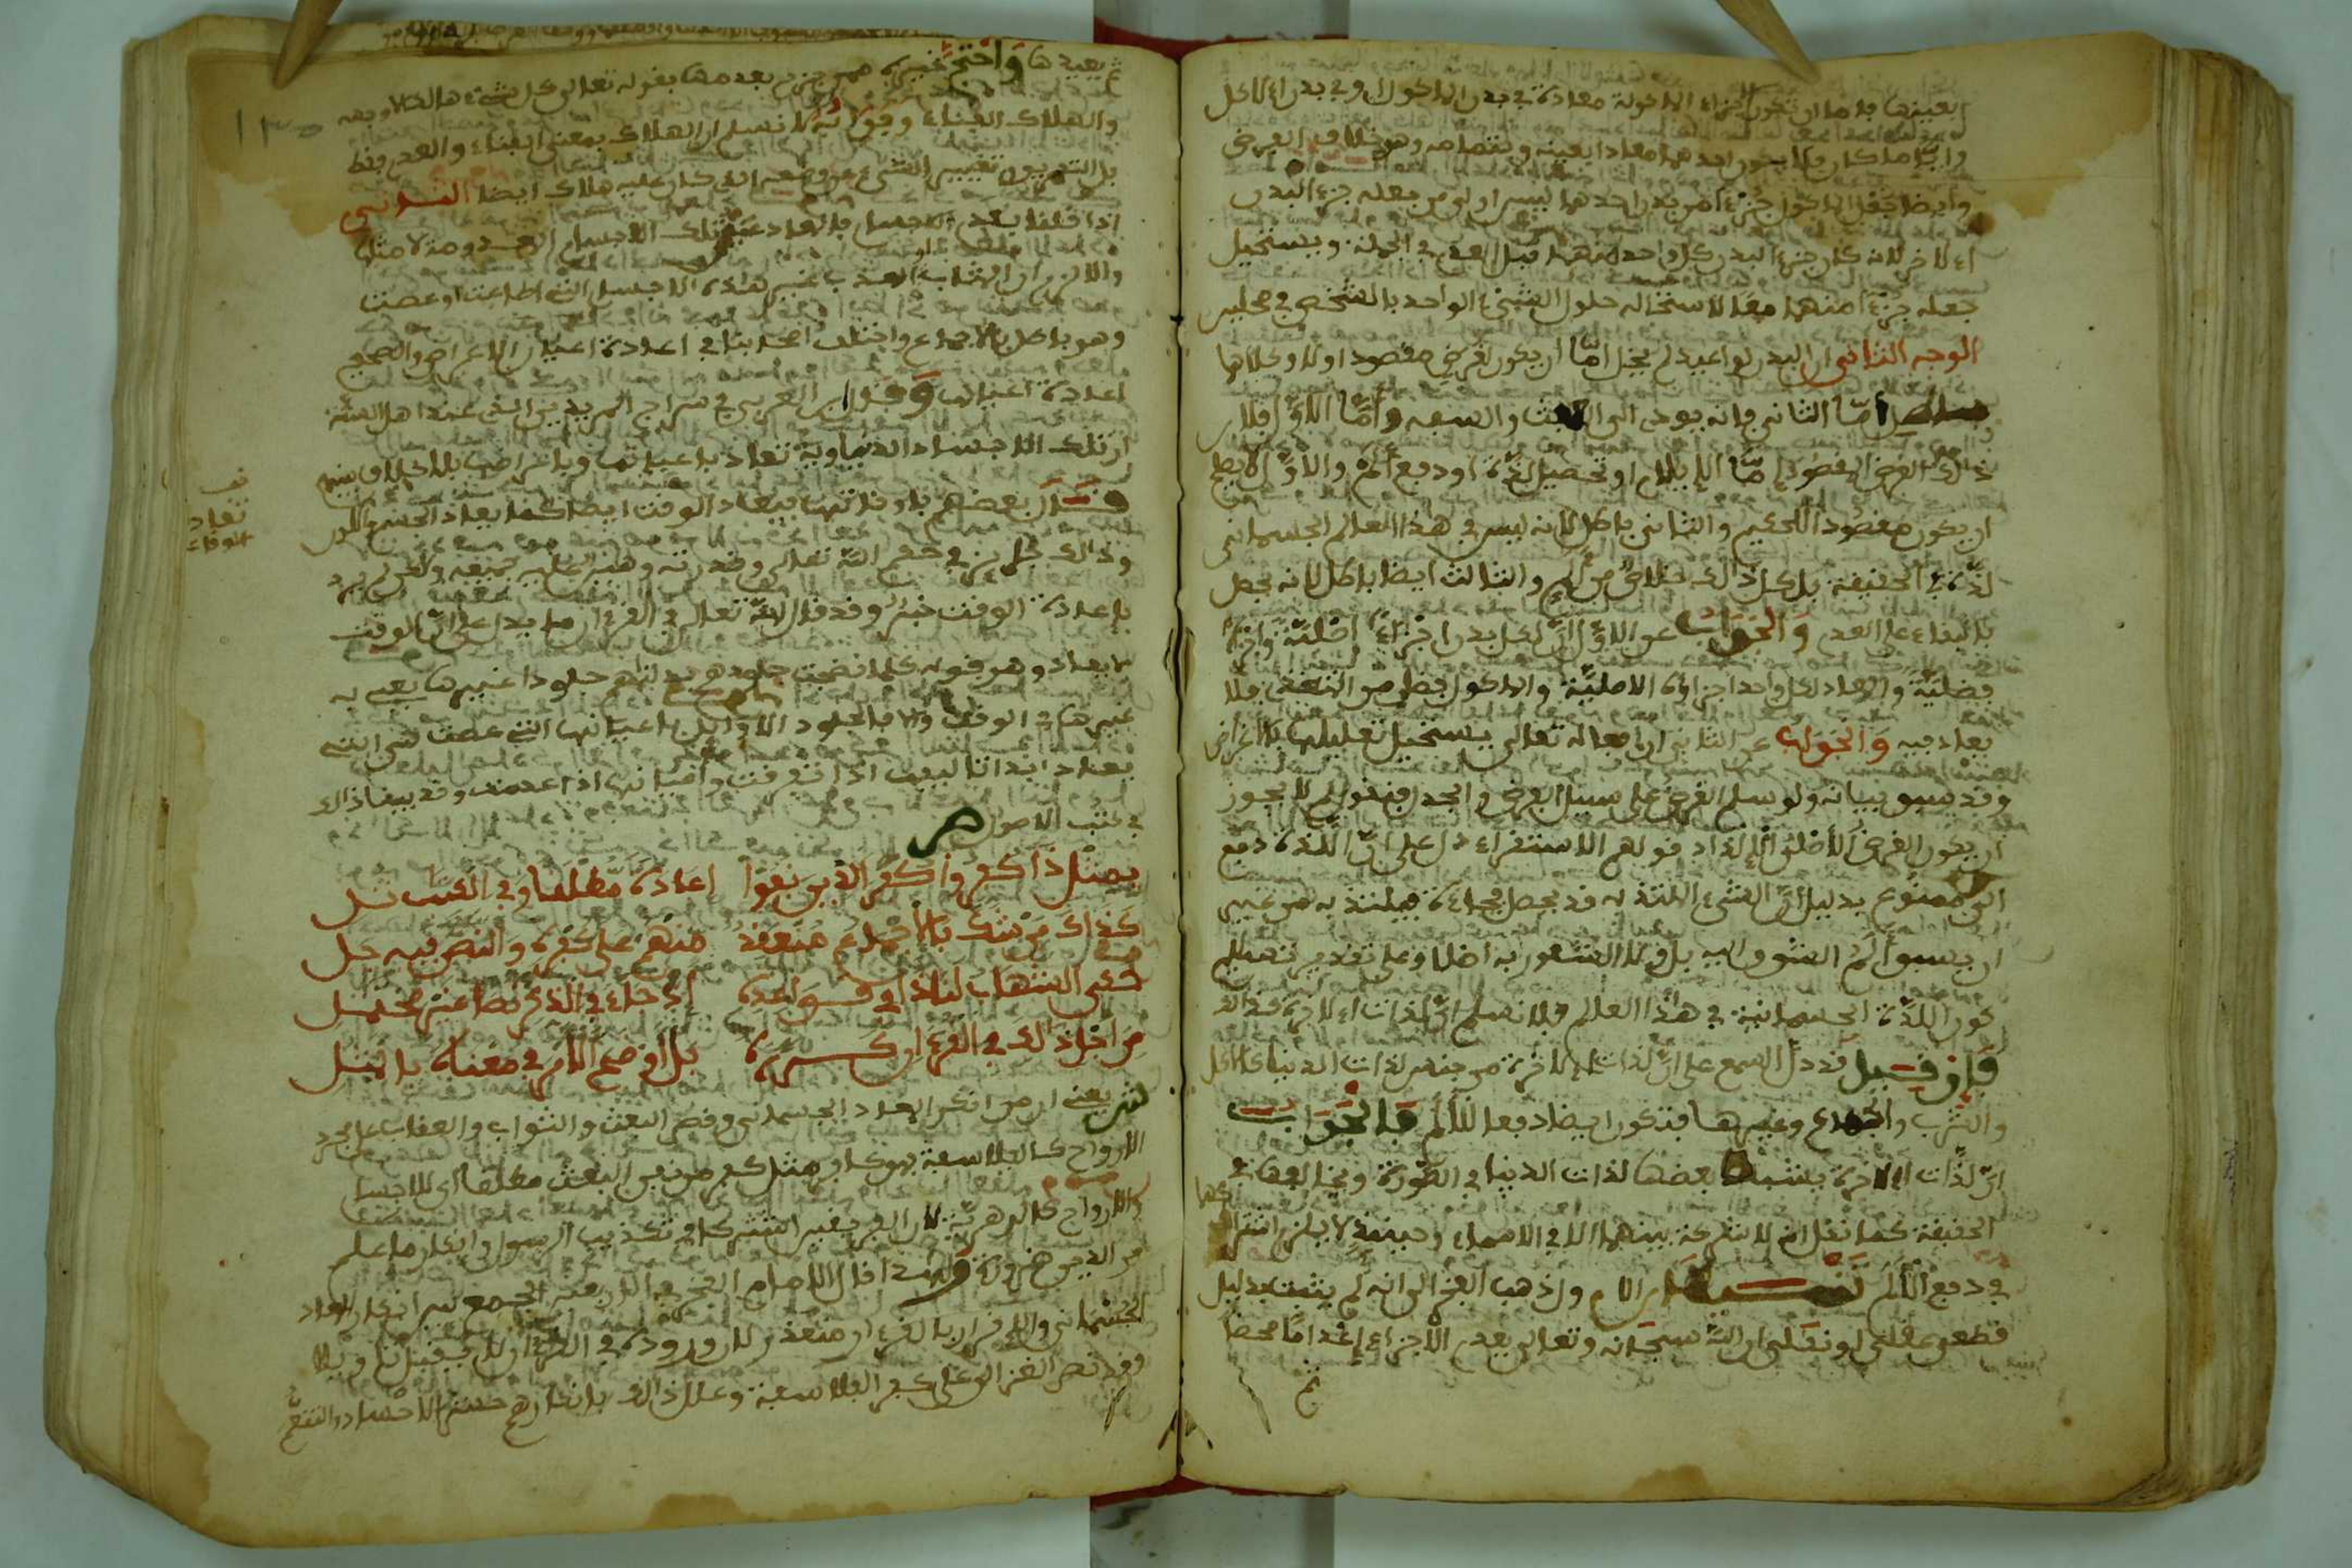 بعينها فاما ان تكون اجزاء الماكولة معادة في بدن الماكول او في بدن الاكل
وايا ما كان فلا يكون احدهما معادا بعينه وبتمامه وهو خلاف الفرض
وايضا جعل الماكول جزءا من بدن احدهما ليس اولى من جعله جزء البدن
الاخر لانه كان جزء البدن كل واحد منهما قبل العدم في الجملة ويستحيل
جعله جزءا منهما معا لاستحالة حلول الشيء الواحد بالشخص في محلين
الوجه الثاني ان البدن لو اعيد لم يخل امّا ان يكون لغرض مقصود او لا وكلاهما
باطل أمّا الثاني فانه يودي الى العبث والسفه وأمّا الاوّل فلان
ذلك الغرض المقصود إمّا الإيلام او تحصيل لذّة او دفع ألم والاوّل لا يصلح
ان يكون مقصودا للحكيم والثاني باطل لانه ليس في هذا العالم الجسماني
لذّة في الحقيقة بل كل ذلك خلاص من ألم والثالث ايضا باطل لانه يحصل
بالبقاء على العدم والجواب عن الاوّل انّ لكل بدن اجزاءً اصليّة واجزاء
فضليّة والمعاد لكل واحد اجزاؤه الاصليّة والماكول فضل من المتغذي فلا
يعاد فيه والجواب عن الثاني ان افعاله تعالى يستحيل تعليلها بالاغراض
وقد سبق بيانه ولو سلم الغرض على سبيل الفرض والجدل فنقول لم لا يجوز
ان يكون الغرض الالذاذ قولهم الاستقراء دل على انّ اللذة دفع
الم ممنوع بدليل انّ الشيء الملتذ به قد يحصل فجاءة فيلتذ به من غير
ان يسبق ألم الشوق اليه بل ولا الشعور به اصلا وعلى تقدير تسليم
كون اللذّة الجسمانية في هذا العالم فلا نسلم انّ لذات الاخرة كذلك
فإن قيل قد دلّ السمع على انّ لذات الاخرة من جنس لذات الدنيا كالاكل
والشرب والجماع وغيرها فتكون ايضا دفعا للألم فالجواب
انّ لذّات الاخرة يشبه بعضها لذات الدنيا في الصّورة ويخالفها في
الحقيقة كما نقل انه لا شركة بينهما الا في الاسماء وحينئذ لا يلزم اشتراكهما
في دفع الألم الامام واذهب الفخر الى انه لم يثبت بدليل
قطعي عقلي او نقلي ان اللّه سبحانه وتعالى يعدم الاجزاء إعداما محضا
ثم
يعيدها واحتجّ غيره ممن جزم بعدمها بقوله تعالى كل شيء هالك الا وجهه
والهلاك الفناء وجوابه لا نسلم ان الهلاك بمعنى الفناء والعدم فقط
بل التفريق تغيير الشيء عن وضعه الذي كان عليه هلاك ايضا القسم الثاني
اذا قلنا بعدم الاجسام فالمعاد عين تلك الاجسام المعدومة لا مثلها
والا لزم ان المثاب والمعذب غير هذه الاجسام التي اطاعت او عصت
وهو باطل بالاجماع واختلف اصحابنا في اعادة اعيان الاعراض والصحيح
اعادة اعيانها وقال ابن العربي في سراج المريدين الذي عند اهل السّنّة
ان تلك الاجساد الدنياوية تعاد باعيانها وباعراضها بلا خلاف بينهم
قال بعضهم باوقاتها فيعاد الوقت ايضا كما يعاد الجسم واللون
وذلك جائز في حكم اللّه تعالى وقدرته وهيّن عليه جميعه ولكن لم يرد
باعادة الوقت خبر وقد قال اللّه تعالى في القرءان ما يدل على انّ الوقت
لا يعاد وهو قوله كلما نضجت جلودهم بدلناهم جلودا غيرها يعني به
غيرها في الوقت والا فالجلود الاوائل باعيانها التي عصت هي التي
تعاد ابدا تاليفها اذا تفرقت واعيانها اذا عدمت وقد بينا ذلك
في كتب الاصول ص
بمثل ذا كفر واكفر الذين نفوا إعادة مطلقا وفي الكتاب تتل
كذاك من شك بالاجماع منعقد منهم على كفره والنص فيه جل
حكى الشهاب لنا ذا في قواعده إذ جاء في الذكر نصا غير محتمل
من اجل ذلك في القرءان كرره بل اوضح الامر في معناه بالمثل
ش يعني ان من انكر المعاد الجسماني وقصر البعث والثواب والعقاب على مجرد
الارواح كالفلاسفة فهو كافر مثل كفر من نفى البعث مطلقا اي للاجسام
والارواح كالدهريّة لان الفريقين اشتركا في تكذيب الرسول وانكار ما علم
من الدين ضرورة ولهذا قال الامام الفخر في الاربعين الجمع بين انكار المعاد
الجسماني والاقرار بالقرءان متعذر لان وروده في القرءان لا يقبل تاويلا
وقد نص الغزالي على كفر الفلاسفة وعلل ذلك بانكارهم حشر الاجساد والتنعّم
قف
تعاد
الاوقات